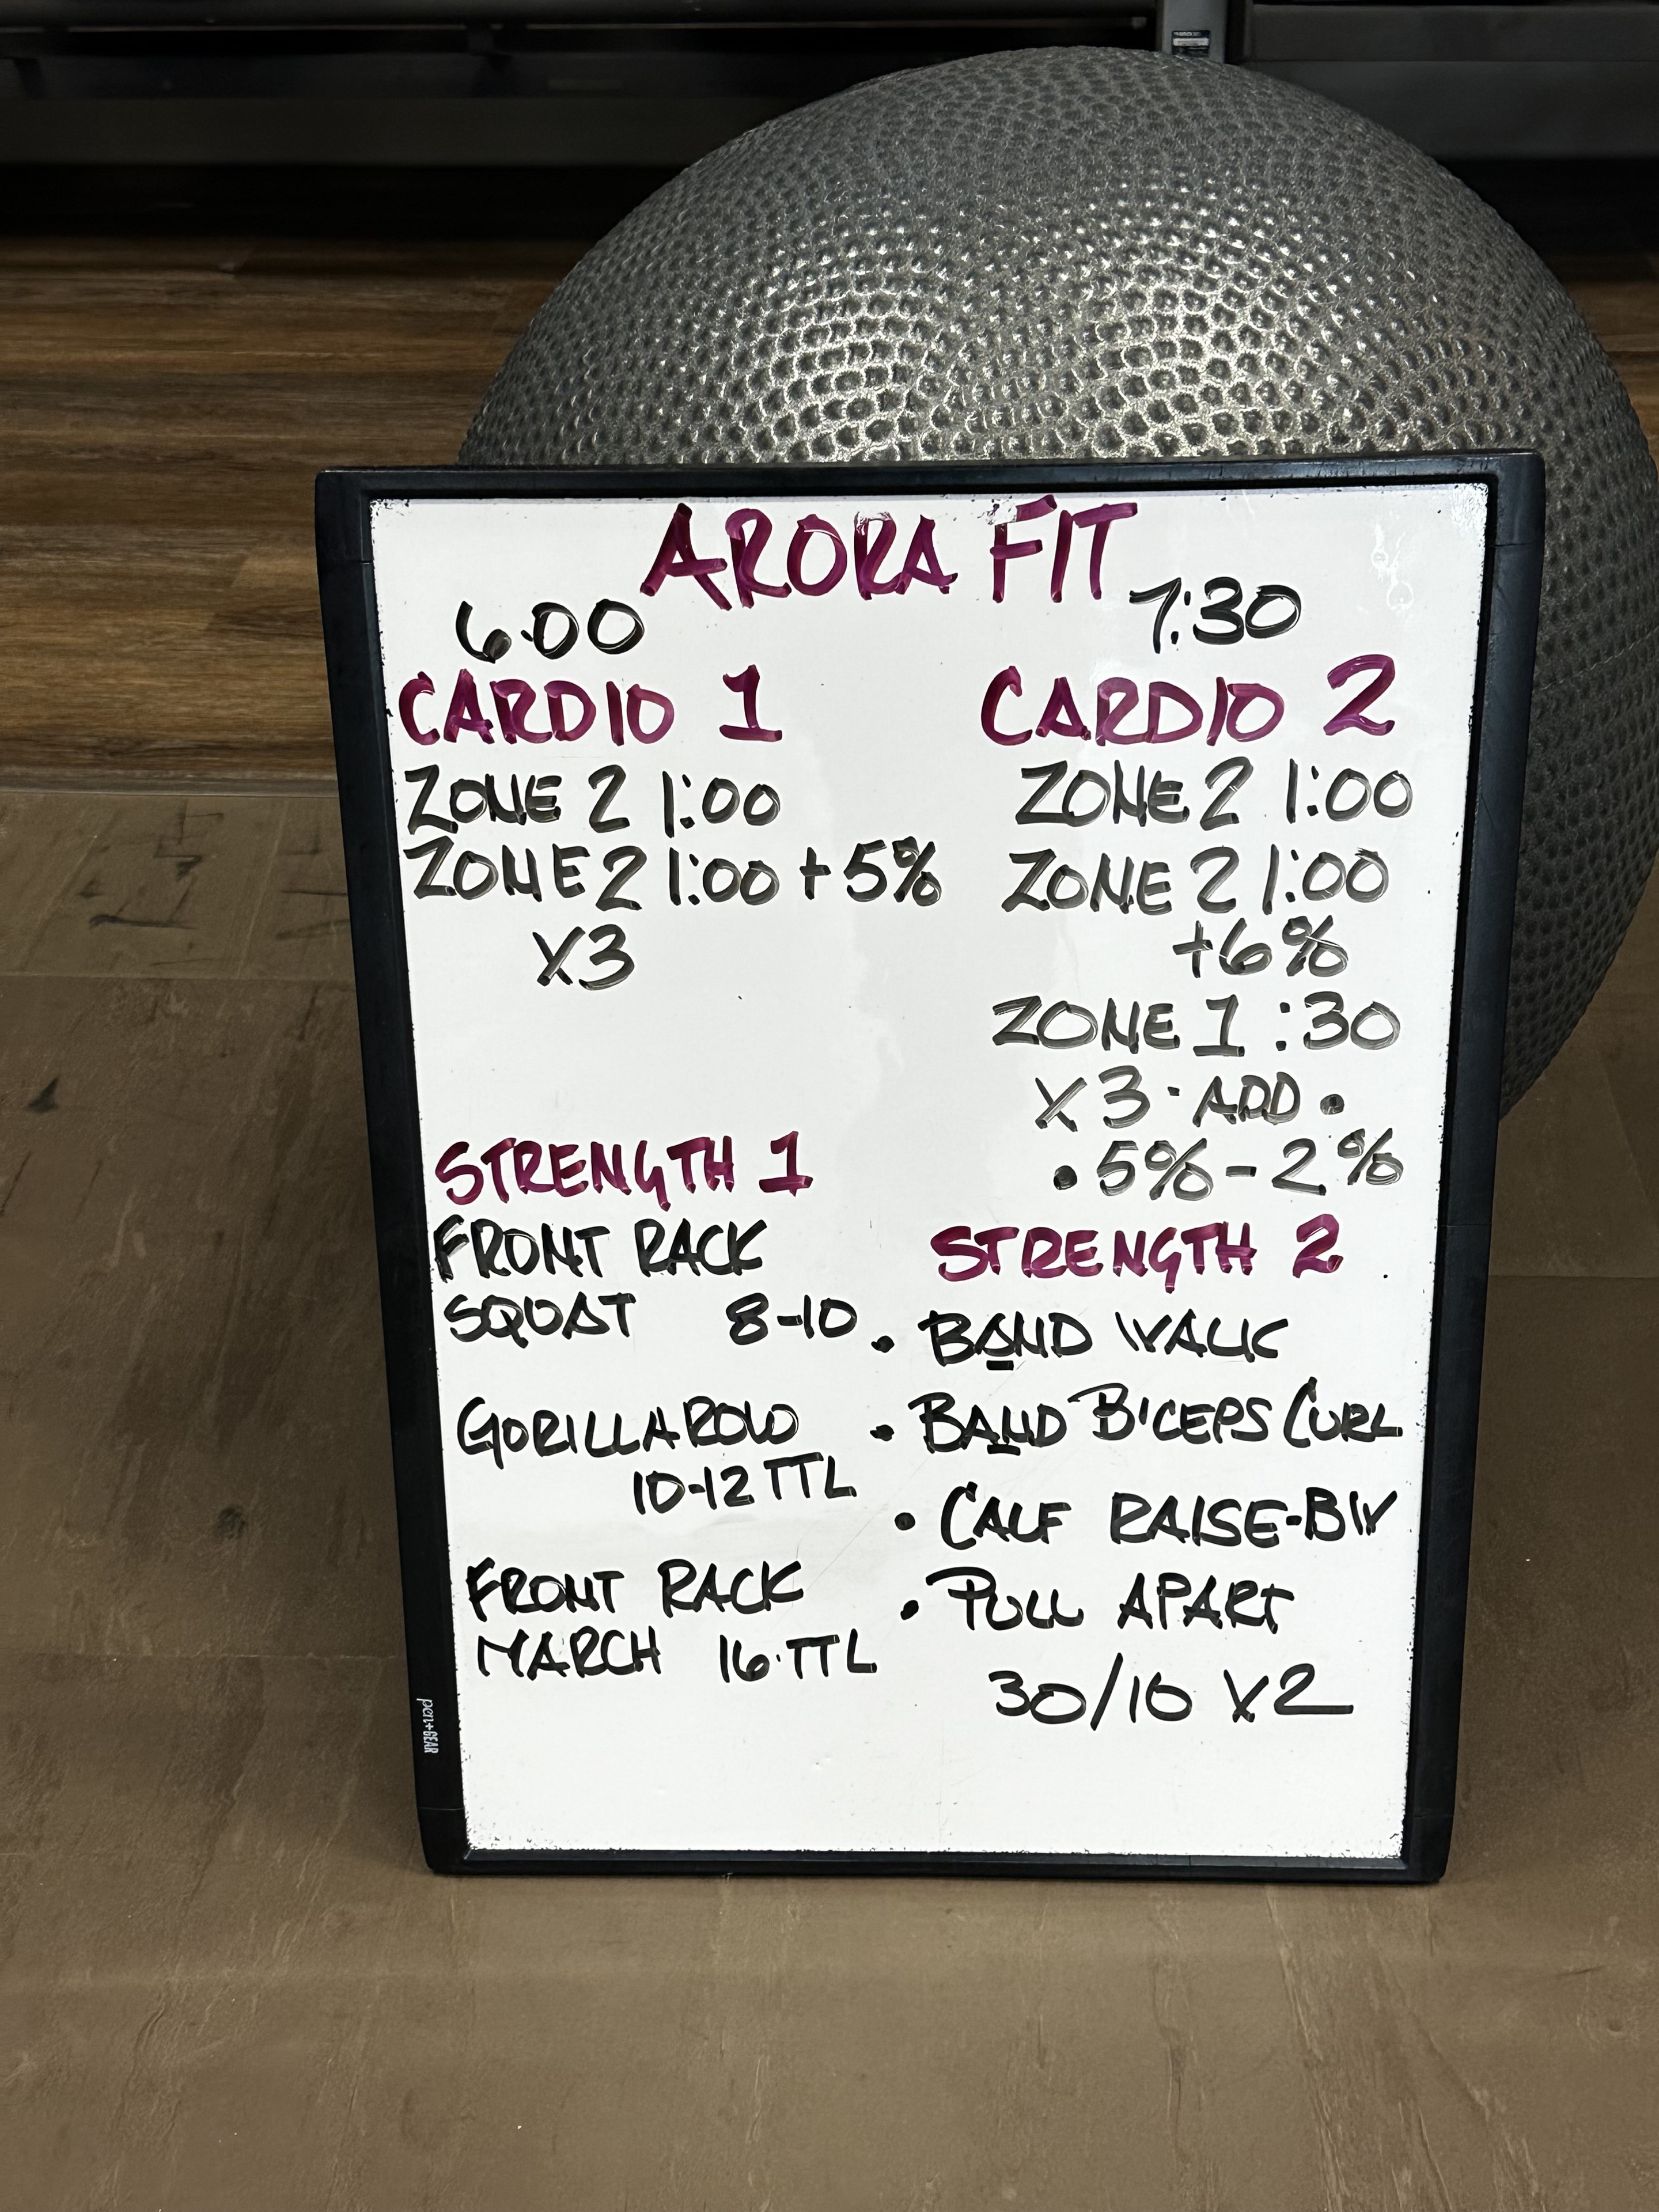 ARORA FIT
6:00
CARDIO 1
ZONE 2 1:00
ZONE 2 1:00 + 5%
X3
STRENGTH 1
FRONT RACK
SQUAT 8-10
GORILLA ROW
10-12 TTL
FRONT RACK
MARCH 16 TTL
7:30
CARDIO 2
ZONE 2 1:00
ZONE 2 1:00
+6%
ZONE 1 :30
X 3 · ADD ·
· 5% - 2%
STRENGTH 2
· BAND WALK
· BAND BICEPS CURL
· CALF RAISE-BW
· PULL APART
30/10 X2
pen+GEAR